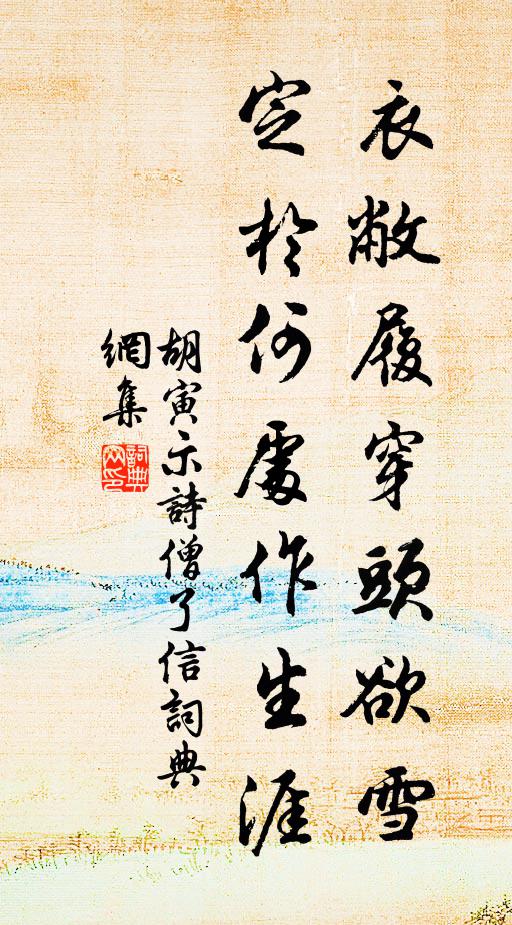 衣敝履穿頭欲雪
定於何處作生涯
胡寅示詩僧了信詞典
網集
詞典
网印